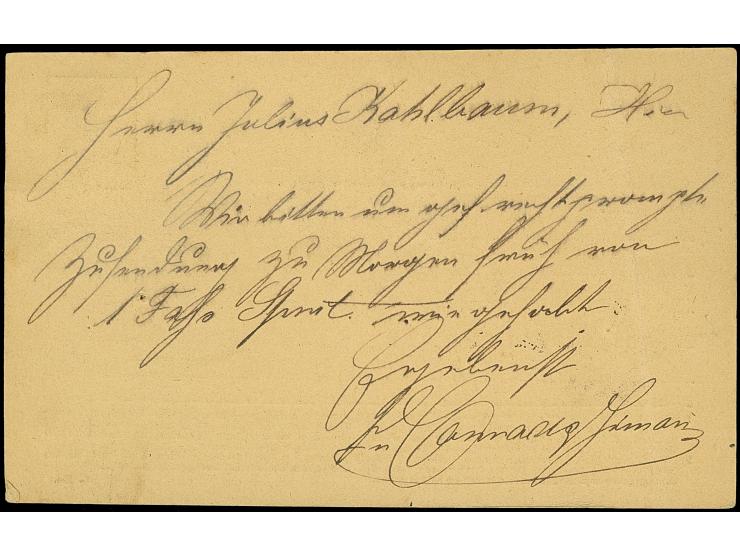 Herrn Julius Kahlbaum, Hier
Wir bitten um gefl recht prompte
Zusendung zu Morgen früh von
1 Faß Sprit wie gehabt
Ergebenst